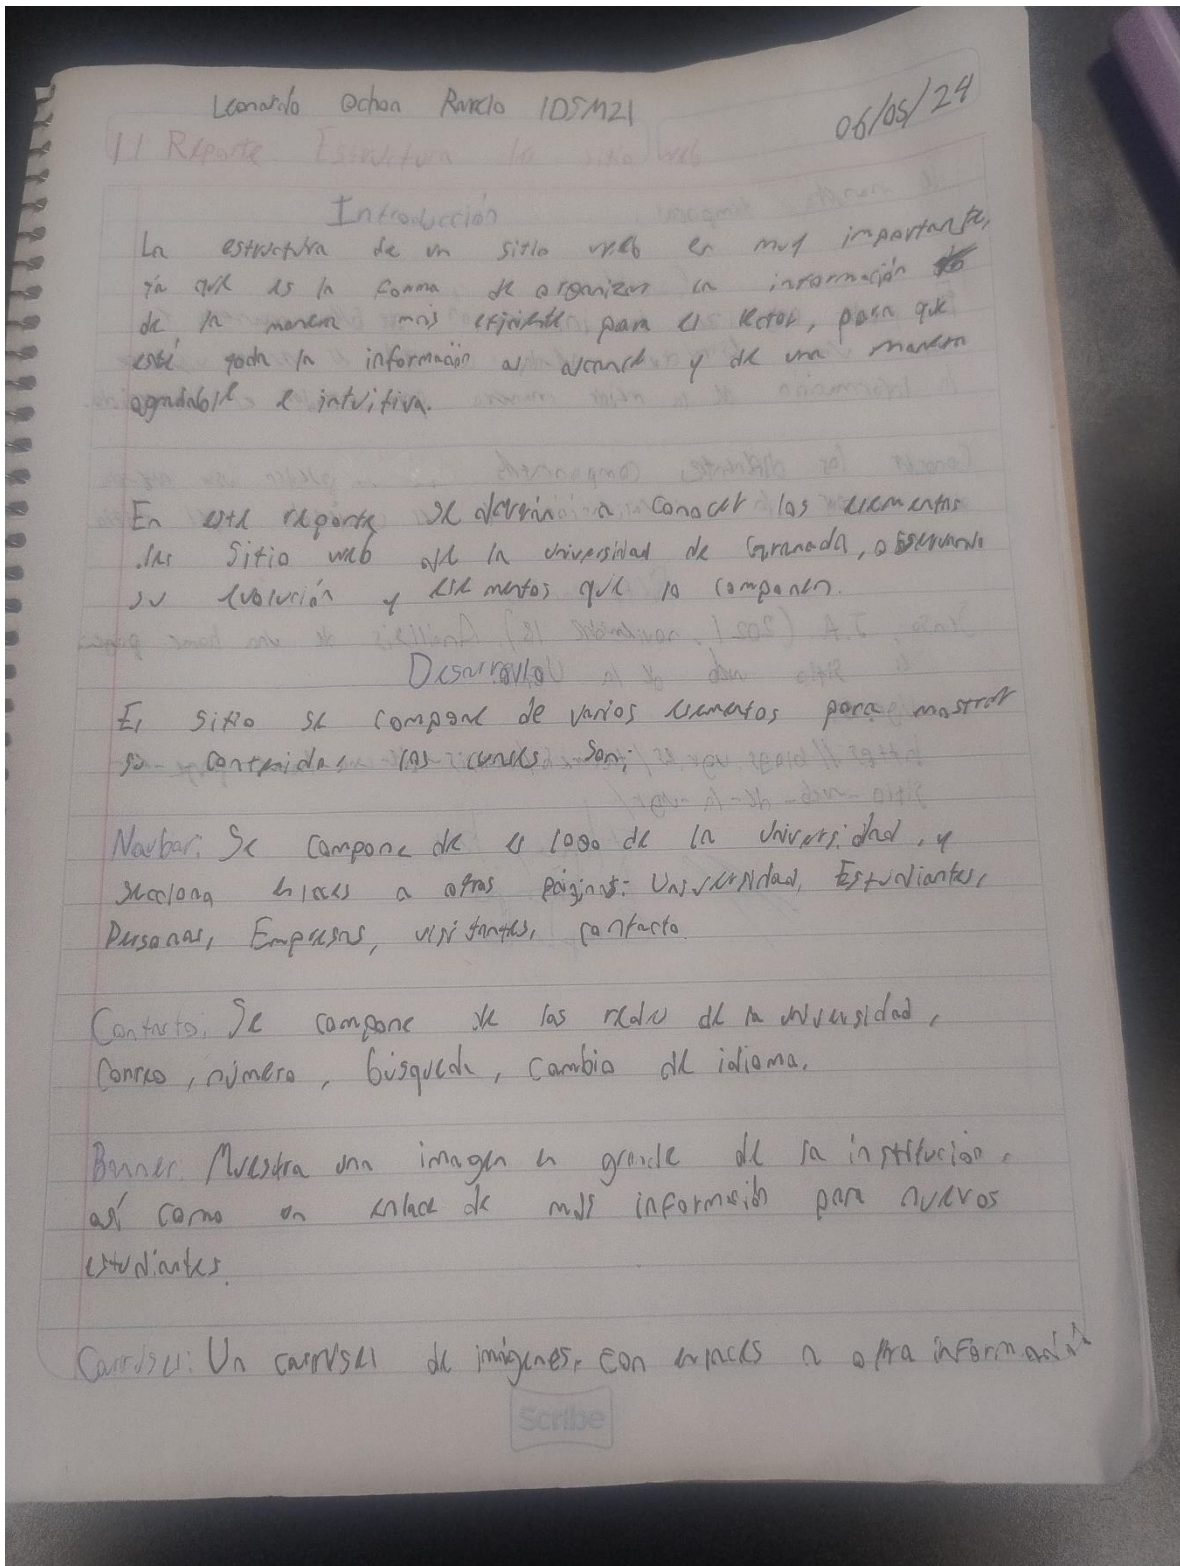 Leonardo Ochoa IDSM21
06/05/24
11 Reporte Estructura sitio web
Introducción
La estructura de un sitio web es muy importante,
ya que es la forma de organizar la información
de la manera más eficiente para el lector, para que
esté toda la información al alcance y de una manera
agradable e intuitiva.
En este reporte se a conocer los elementos
del sitio web de la universidad de Granada, observando
su evolución y elementos que lo componen.
Desarrollo
El sitio se compone de varios elementos para mostrar
su contenido, los cuales son;
Navbar: Se compone de el logo de la universidad, y
enlaces a otras páginas: Universidad, Estudiantes,
Personas, Empresas, visitantes, contacto.
Contacto: Se compone de las redes de la universidad,
Correo, número, búsqueda, cambio de idioma.
Banner: Muestra una imagen en grande de la institución,
así como un enlace de más información para nuevos
estudiantes.
Carrusel: Un carrusel de imágenes, con enlaces a otra información
Scribe